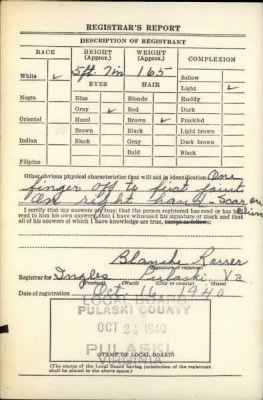 REGISTRAR'S REPORT
DESCRIPTION OF REGISTRANT
RACE HEIGHT (Approx.) WEIGHT (Approx.) COMPLEXION
5 ft. 7 in 165
White ✓ EYES HAIR Sallow
Light ✓
Negro Blue Blonde Ruddy
Gray ✓ Red Dark
Oriental Hazel Brown ✓ Freckled
Brown Black Light brown
Indian Black Gray Dark brown
Bald Black
Filipino
Other obvious physical characteristics that will aid in identification One
finger off to first joint
on right hand - Scar on
chin
I certify that my answers are true; that the person registered has read or has had
read to him his own answers; that I have witnessed his signature or mark and that
all of his answers of which I have knowledge are true, except as follows:
Blanche
(Signature of registrar)
Registrar for Ingles Pulaski Va
(Precinct) (Ward) (City or county) (State)
Date of registration Oct. 16 - 1940
LOCAL BOARD
PULASKI COUNTY
OCT 24 1940
PULASKI
VIRGINIA
STAMP OF LOCAL BOARD
(The stamp of the Local Board having jurisdiction of the registrant
shall be placed in the above space.)